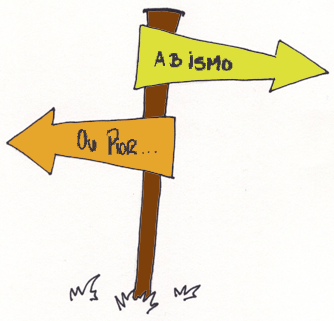 ABiSMO
OU PiOR...